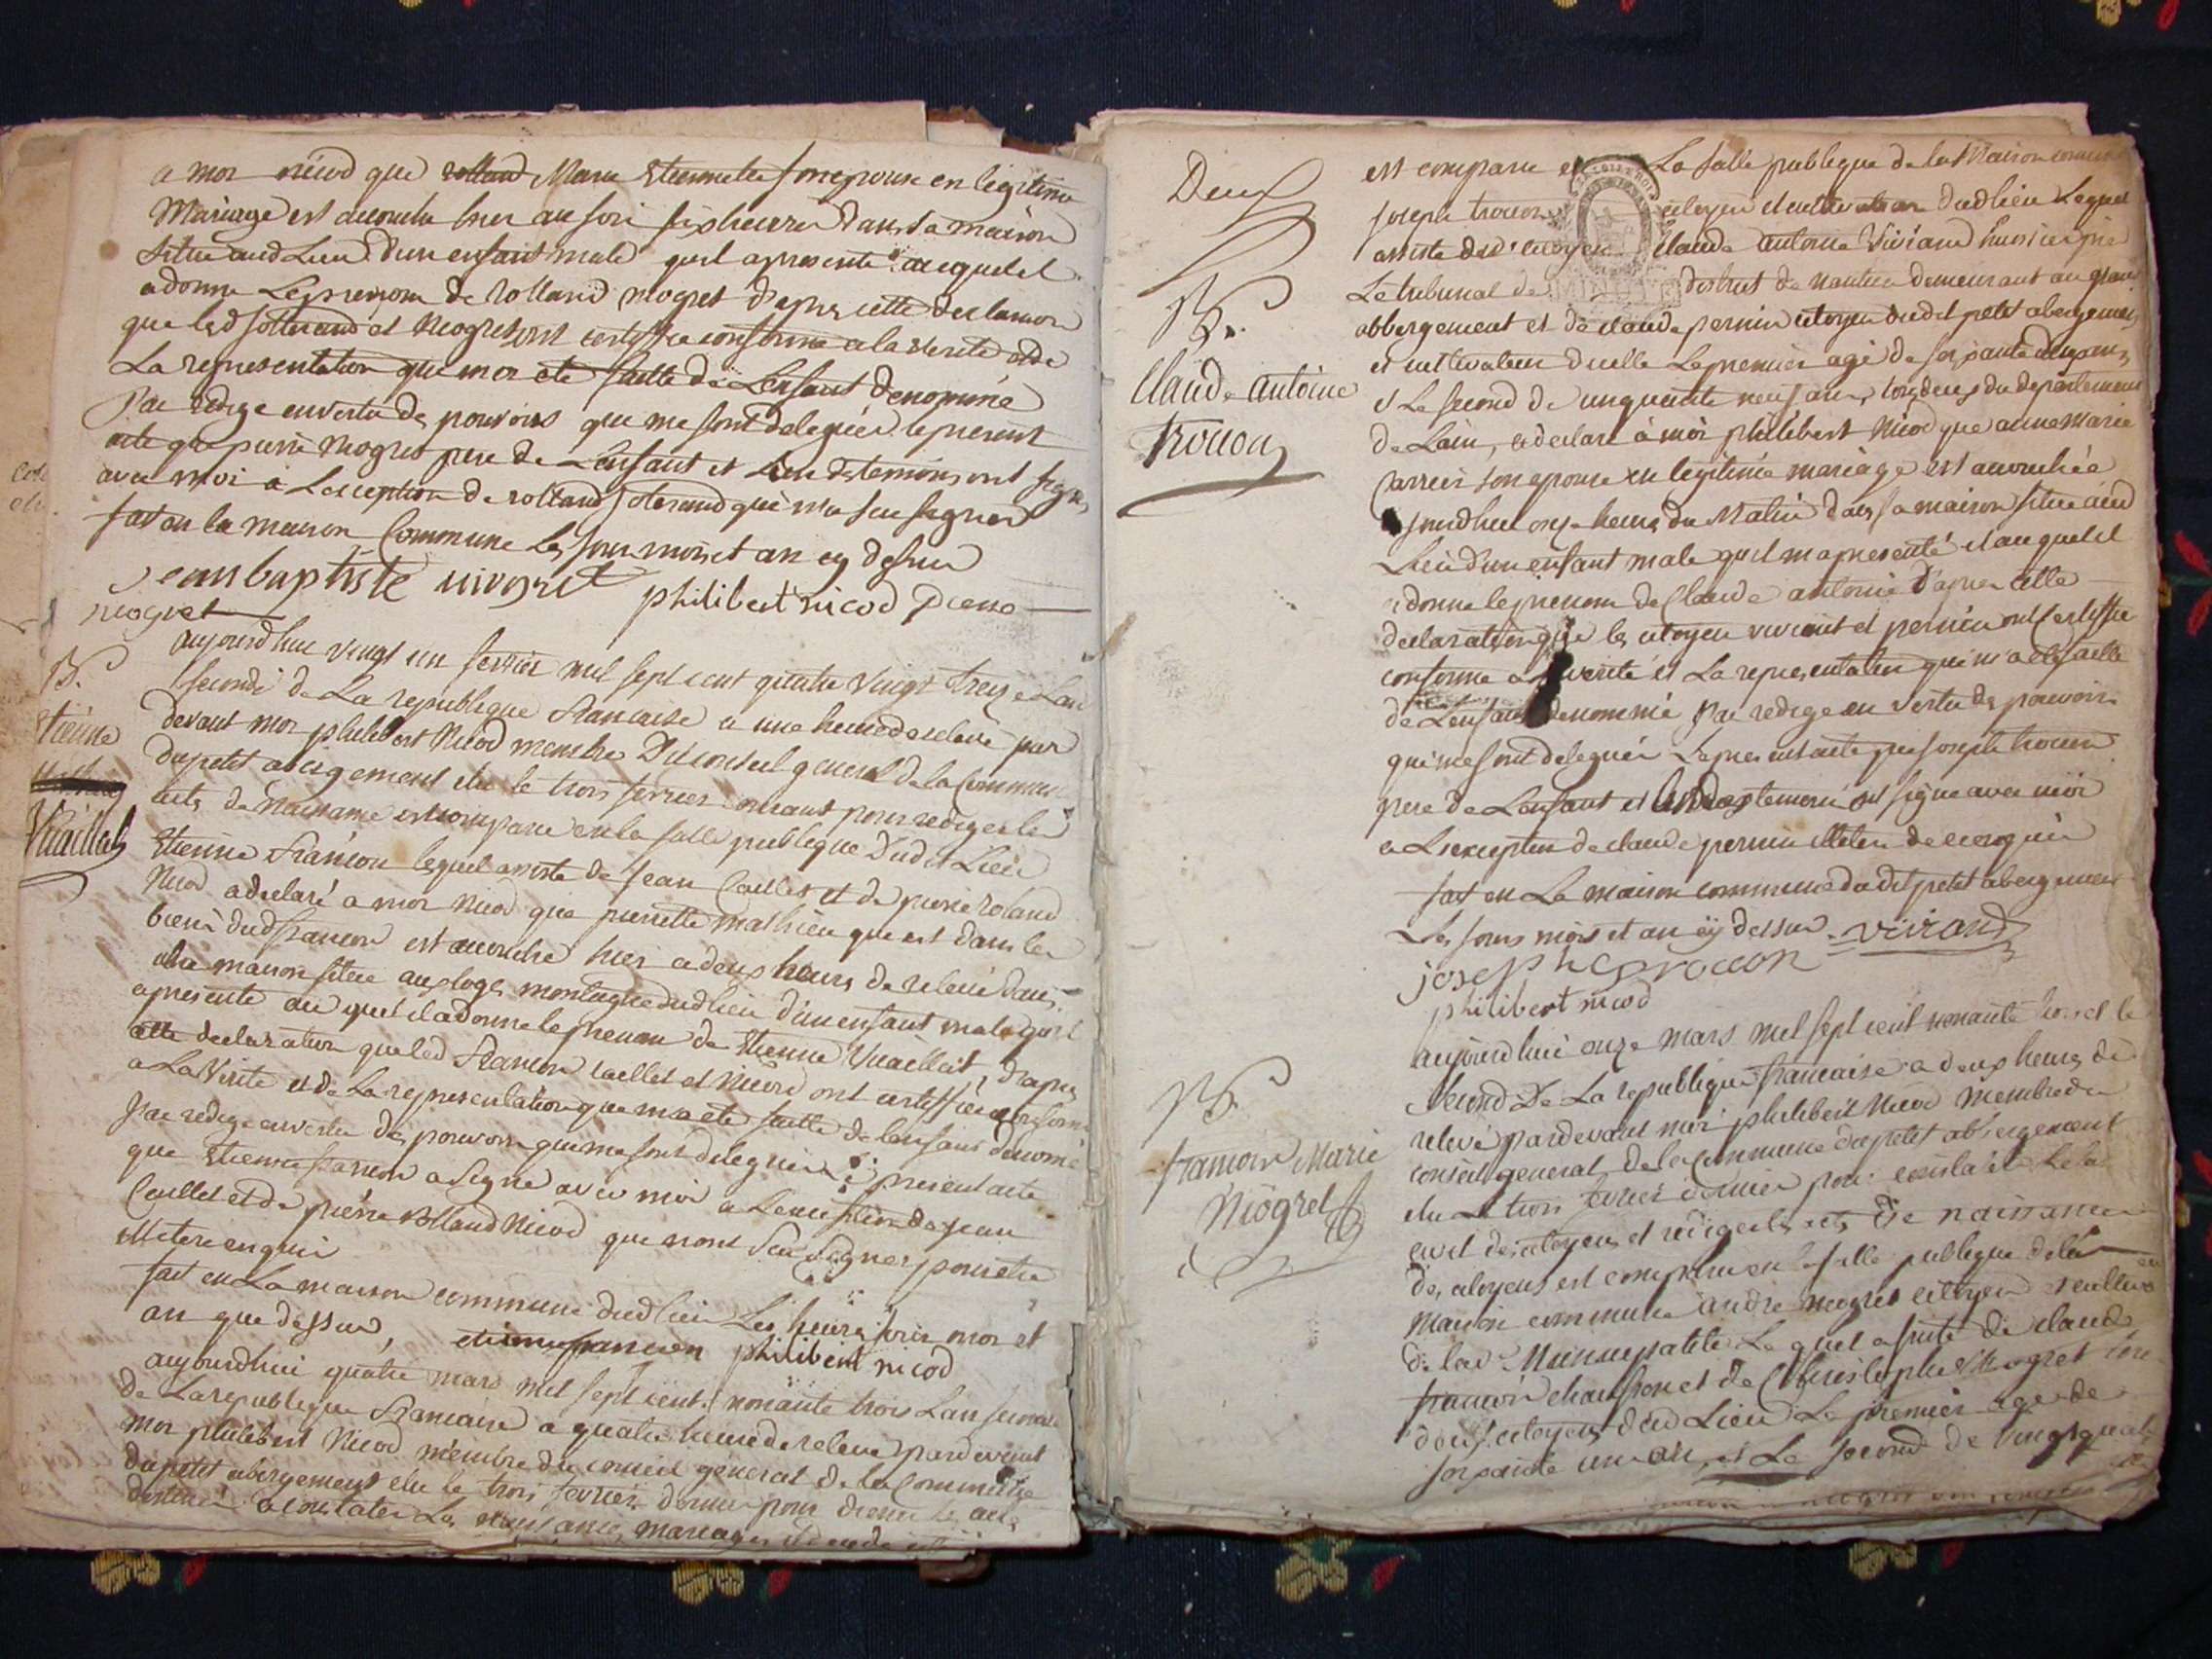 a moi nicod que rolland Marie Etiennette son epouse en legitime
Mariage est accouche hier au soir six heures dans sa maison
situe aud Lieu d'un enfant male quil a presenté auquel il
a donne Le prenom de rolland niogret d'apres cette declaration
que les d sotterand et Niogret ont certiffie conforme a la verite et de
La representation qui m'a ete faitte de L'enfant denommé
J'ai redige en vertu des pouvoirs qui me sont delegués le present
acte que pierre Niogret pere de L'enfant et Lun des temoins ont signe
avec moi a L'exception de rolland soterand qui n'a sceu signer
fait en la maison Commune Les jour mois et an cy dessus
Jean baptiste niogret philibert nicod Piere
niogret
N.
Etiene
Vuaillat
aujourd'hui vingt un fevrier mil sept cent quatre vingt treize L'an
second de La republique francaise a une heure de relevé par
devant moi philibert Nicod membre Du conseil general de la Commune
du petit abergement elu le trois fevrier courant pour rediger les
acts de naissance est comparu en la salle publique Dudit Lieu
Etienne francon lequel assiste de jean Caillet et de pierre roland
Nicod a declaré a moi Nicod que pierrette mathieu qui est dans les
biens dud francon est accouche hier a deux heures de relevé dans
la maison situe aux loges montagne dudlieu d'un enfant male quil
a presenté au quel il a donne le prenom de Etienne Vuaillat, d'apres
cette declaration que led francon caillet et Nicod ont certiffie conforme
a La Verite et de La representation qui m'a ete faitte de l'enfant denomé
J'ai redige en vertu des pouvoirs qui me sont delegués le present acte
que Etienne francon a signe avec moi a L'exception de jean
Caillet et de pierre rolland Nicod qui n'ont sceu signer pour etre
illetere enquis
fait en La maison commune dud lieu Les heure jour mois et
an que dessus, etienne francon philibert nicod
aujourd'hui quatre mars mil sept cent nonante trois L'an second
de La republique francaise a quatre heure de relevé pardevant
moi philibert Nicod membre du conseil general de la Commune
du petit abergement elu le trois fevrier dernier pour dresser les acts
destinés a constater Les naissances, mariages et deces
Deux
N.
Claude antoine
Trocon
est comparu en La salle publique de la Maison commune
joseph trocon citoyen et cultivateur dud lieu Lequel
assiste des citoyens claude antoine Viviand huissier pres
Le tribunal de district de nantua demeurant au grand
abbergement et de claude pernin citoyen dudit petit abergement
et cultivateur d'icelle Le premier agé de soixante
et Le second de cinquante neuf ans, tous deux du departement
de L'ain, a declaré à moi philibert Nicod que anne marie
son epouse en legitime mariage est accouchée
aujourd'hui onze heures du Matin dans sa maison situe aud
Lieu d'un enfant male quil m'a presenté et auquel il
a donne le prenom de Claude antoine D'apres cette
declaration que les citoyens viviant et pernin ont certiffie
conforme a la verite et La representation qui m'a ete faitte
de L'enfant denommé J'ai redige en vertu des pouvoirs
qui me sont delegués Le present acte que joseph trocon
pere de L'enfant et l'un des temoins ont signe avec moi
a L'exception de claude pernin illetere de ce enquis
fait en La maison commune dudit petit abergement
Les jours mois et an cy dessus. viviand
joseph trocon
philibert nicod
N.
francois Marie
Niogret
aujourd'hui onze mars mil sept cent nonante trois et le
second De La republique francaise a deux heures de
relevé pardevant moi philibert Nicod membre du
conseil general de la Commune du petit abbergement
elu Le trois fevrier dernier pour constater Le
civil des citoyens et rediger les acts de naissances
des citoyens est comparu en la salle publique de la
maison commune andre niogret citoyen et cultivateur
de lad Municipalite Le quel assisté de claude
francois chanfron et de Niogret
citoyens dud Lieu Le premier age de
soixante un an et Le second de vingt quatre